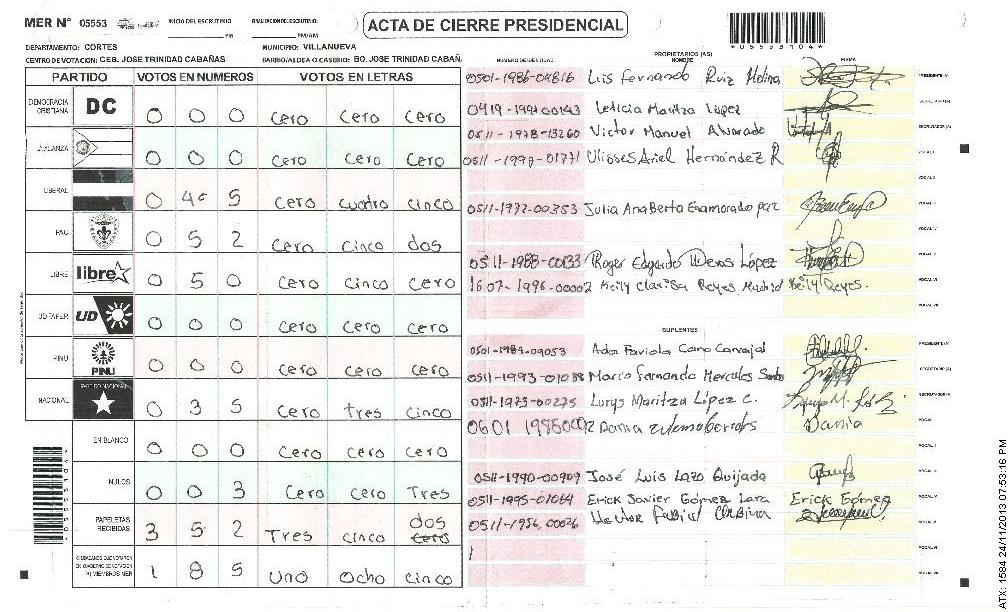 MER N° 05553
INICIO DEL ESCRUTINIO: PM
FINALIZACION DEL ESCRUTINIO: PM/AM
ACTA DE CIERRE PRESIDENCIAL
DEPARTAMENTO: CORTES
MUNICIPIO: VILLANUEVA
CENTRO DE VOTACION: CEB. JOSE TRINIDAD CABAÑAS
BARRIO/ALDEA O CASERIO: BO. JOSE TRINIDAD CABAÑA
PARTIDO VOTOS EN NUMEROS VOTOS EN LETRAS
DEMOCRACIA CRISTIANA DC 0 0 0 Cero Cero Cero
ALIANZA 0 0 0 Cero Cero Cero
LIBERAL 0 4 5 Cero Cuatro Cinco
PAC 0 5 2 Cero Cinco dos
LIBRE libre 0 5 0 Cero Cinco Cero
UD PAPER UD 0 0 0 Cero Cero Cero
PINU PINU 0 0 0 Cero Cero Cero
NACIONAL PARTIDO NACIONAL 0 3 5 Cero Tres Cinco
EN BLANCO 0 0 0 Cero Cero Cero
NULOS 0 0 3 Cero Cero Tres
PAPELETAS RECIBIDAS 3 5 2 Tres Cinco Cero dos
CIUDADANOS QUE VOTARON EN CUADERNO DE VOTACION (+) MIEMBROS MER 1 8 5 Uno Ocho Cinco
PROPIETARIOS (AS)
NUMERO DE IDENTIDAD NOMBRE FIRMA
0501-1986-04816 Luis Fernando Ruiz Molina PRESIDENTE (A)
0419-1991-00143 Leticia Maritza López
0511-1978-13260 Victor Manuel Alvarado ESCRUTADOR (A)
0511-1998-01771 Ulisses Ariel Hernández R VOCAL I
VOCAL II
0511-1972-00353 Julia Ana Berta Enamorado paz VOCAL III
VOCAL IV
0511-1988-00133 Roger Edgardo López VOCAL V
1607-1996-00002 Keily Clarisa Reyes Madrid Keily Reyes. VOCAL VI
VOCAL VII
SUPLENTES
0501-1984-09053 Ada Faviola Cano Carvajal PRESIDENTE (A)
0511-1993-01088 Marco Fernando Hercules Santos SECRETARIO (A)
0511-1973-00275 Lurys Maritza López C. ESCRUTADOR (A)
0601 Dania Dania VOCAL I
VOCAL II
0511-1990-00909 José Luis Lazo Quijada VOCAL III
0511-1995-01064 Erick Javier Gómez Lara Erick Gómez VOCAL IV
0511-1956,00026 Hector VOCAL V
VOCAL VI
VOCAL VII
*05553104*
ATX: 1584 24/11/2013 07:53:16 PM